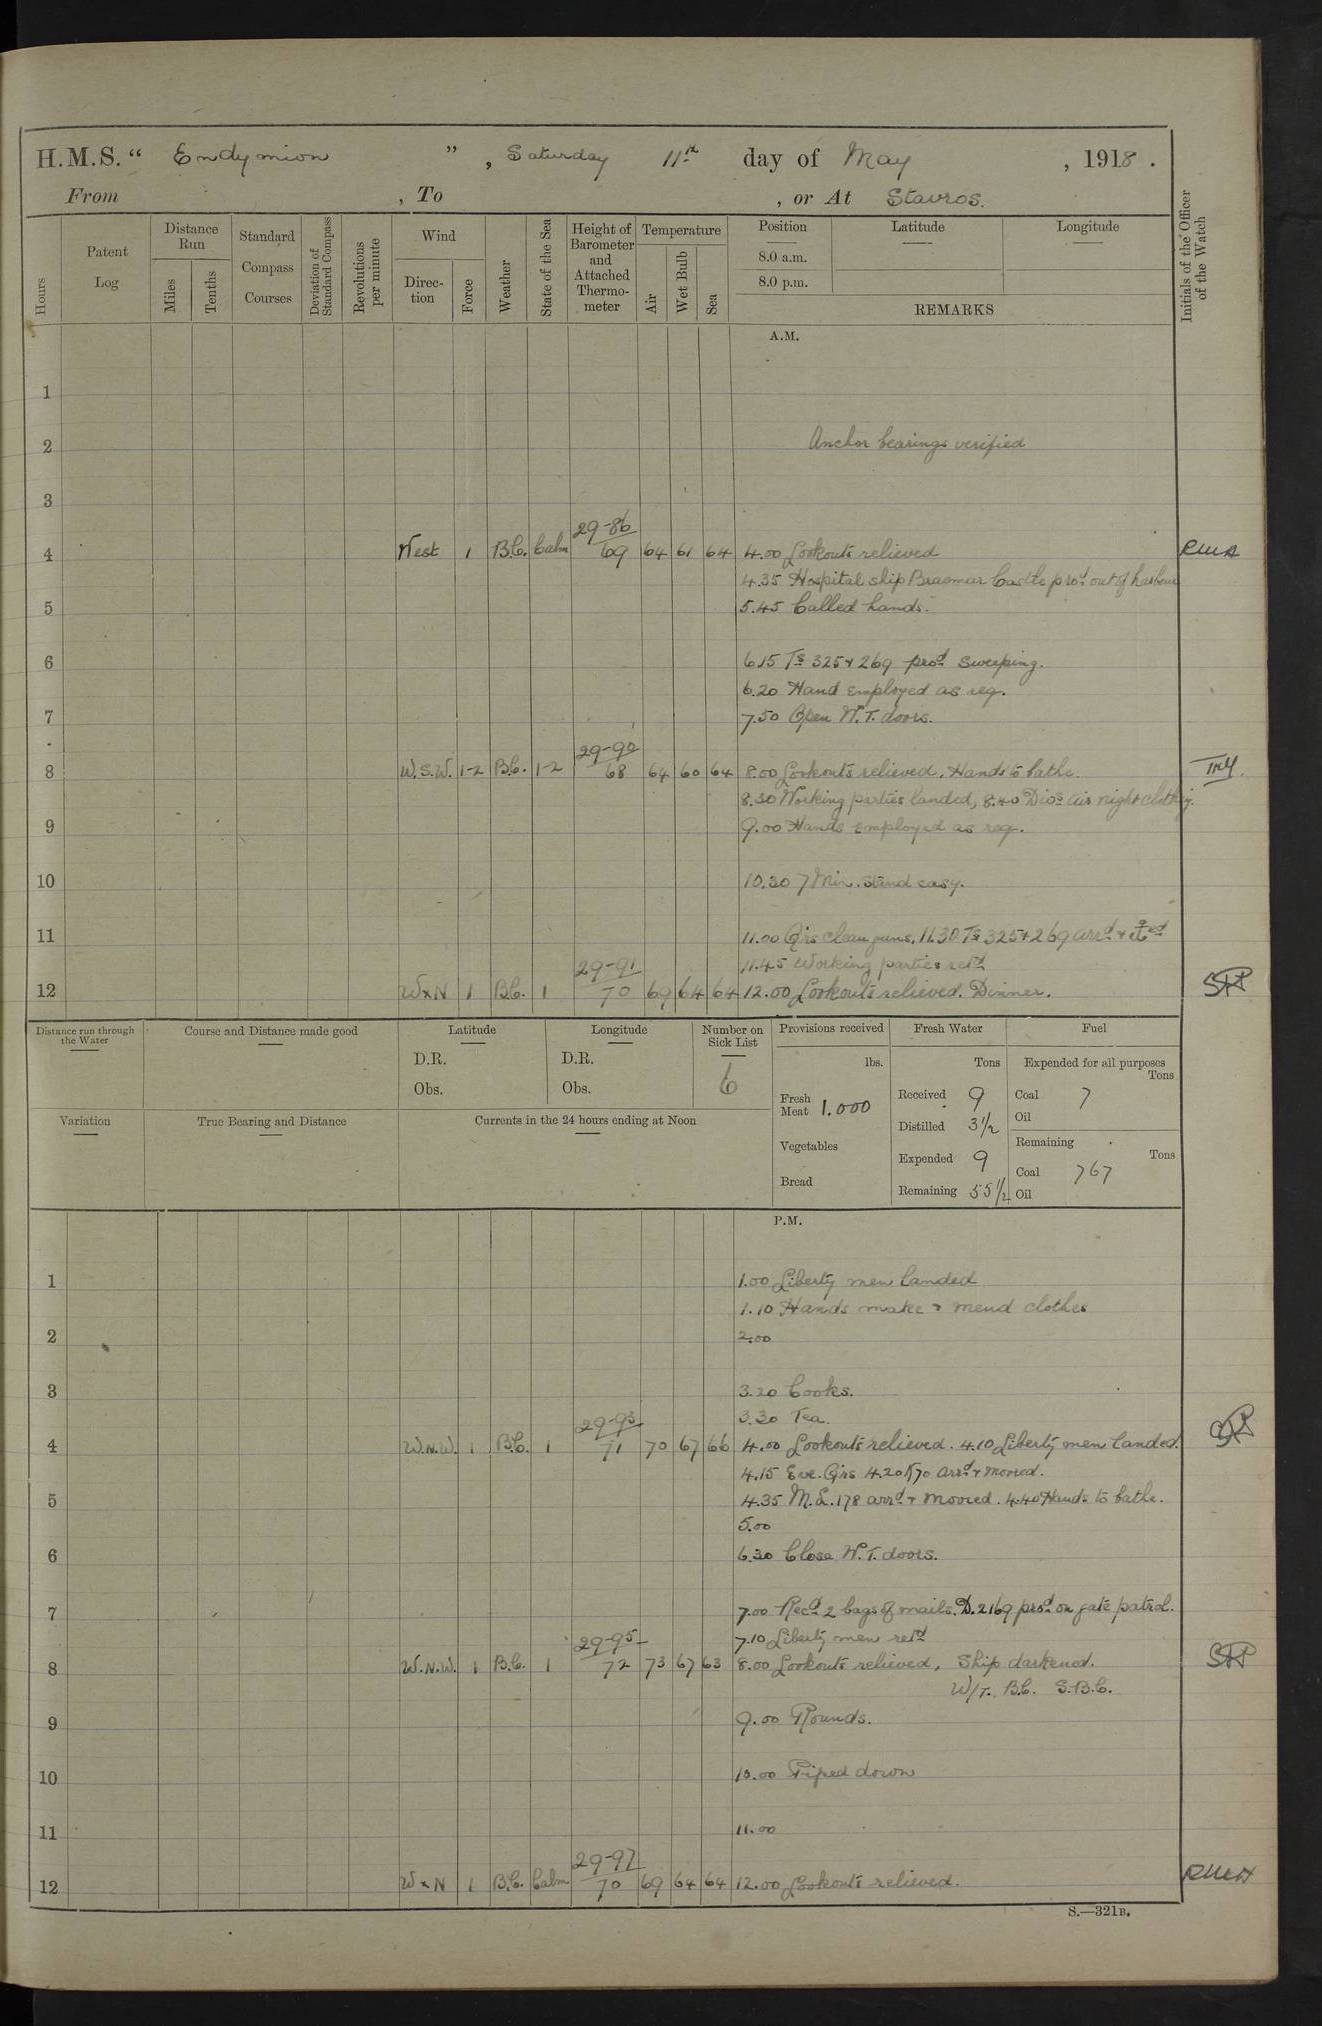 H.M.S. “ Endymion ” , Saturday 11th day of May , 1918 .
From , To , or At Stavros.
Hours
Patent Log
Distance Run
Miles
Tenths
Standard Compass Courses
Deviation of Standard Compass
Revolutions per minute
Wind
Direc-tion
Force
Weather
State of the Sea
Height of Barometer and Attached Thermo-meter
Temperature
Air
Wet Bulb
Sea
Position
8.0 a.m.
8.0 p.m.
Latitude
Longitude
REMARKS
Initials of the Officer of the Watch
A.M.
1
2 Anchor bearings verified
3
29-86
4 West 1 B.C. Calm 69 64 61 64 4.00 Lookouts relieved
4.35 Hospital ship Braemar Castle procd out of harbour
5 5.45 Called hands.
6 6.15 Ts 325 & 269 procd sweeping.
6.20 Hand employed as req.
7 7.50 Open W.T. doors.
29-90
8 W.S.W. 1-2 B.C. 1-2 68 64 60 64 8.00 Lookouts relieved, Hands to bathe.
8.30 Working parties landed, 8.40 Dios air night clothing.
9 9.00 Hands employed as req.
10 10.30 7 Min. Stand easy.
11 11.00 Qrs clean guns, 11.30 Ts 325 & 269 arrd &
29-91 11.45 Working parties retd
12 WxN 1 B.C. 1 70 69 64 64 12.00 Lookouts relieved. Dinner.
Distance run through the Water
Course and Distance made good
Latitude
D.R.
Obs.
Longitude
D.R.
Obs.
Number on Sick List
6
Provisions received
lbs.
Fresh Meat 1.000
Vegetables
Bread
Fresh Water
Tons
Received 9
Distilled 3½
Expended 9
Remaining 55½
Fuel
Expended for all purposes
Tons
Coal 7
Oil
Remaining
Tons
Coal 767
Oil
Variation
True Bearing and Distance
Currents in the 24 hours ending at Noon
P.M.
1 1.00 Liberty men landed
1.10 Hands make & mend clothes
2 2.00
3 3.20 Cooks.
29-93 3.30 Tea.
4 W.N.W. 1 B.C. 1 71 70 67 66 4.00 Lookouts relieved. 4.10 Liberty men landed.
4.15 Eve. Qrs 4.20 K70 arrd & moored.
5 4.35 M.L. 178 arrd & moored. 4.40 Hands to bathe.
5.00
6 6.30 Close W.T. doors.
7 7.00 Recd 2 bags of mails. D.2169 procd on gate patrol.
29-95 7.10 Liberty men retd
8 W.N.W. 1 B.C. 1 72 73 67 63 8.00 Lookouts relieved, Ship darkened.
W/T. B.C. S.B.C.
9 9.00 Rounds.
10 10.00 Piped down
11 11.00
29-97
12 WxN 1 B.C. Calm 70 69 64 64 12.00 Lookouts relieved.
S.—321B.